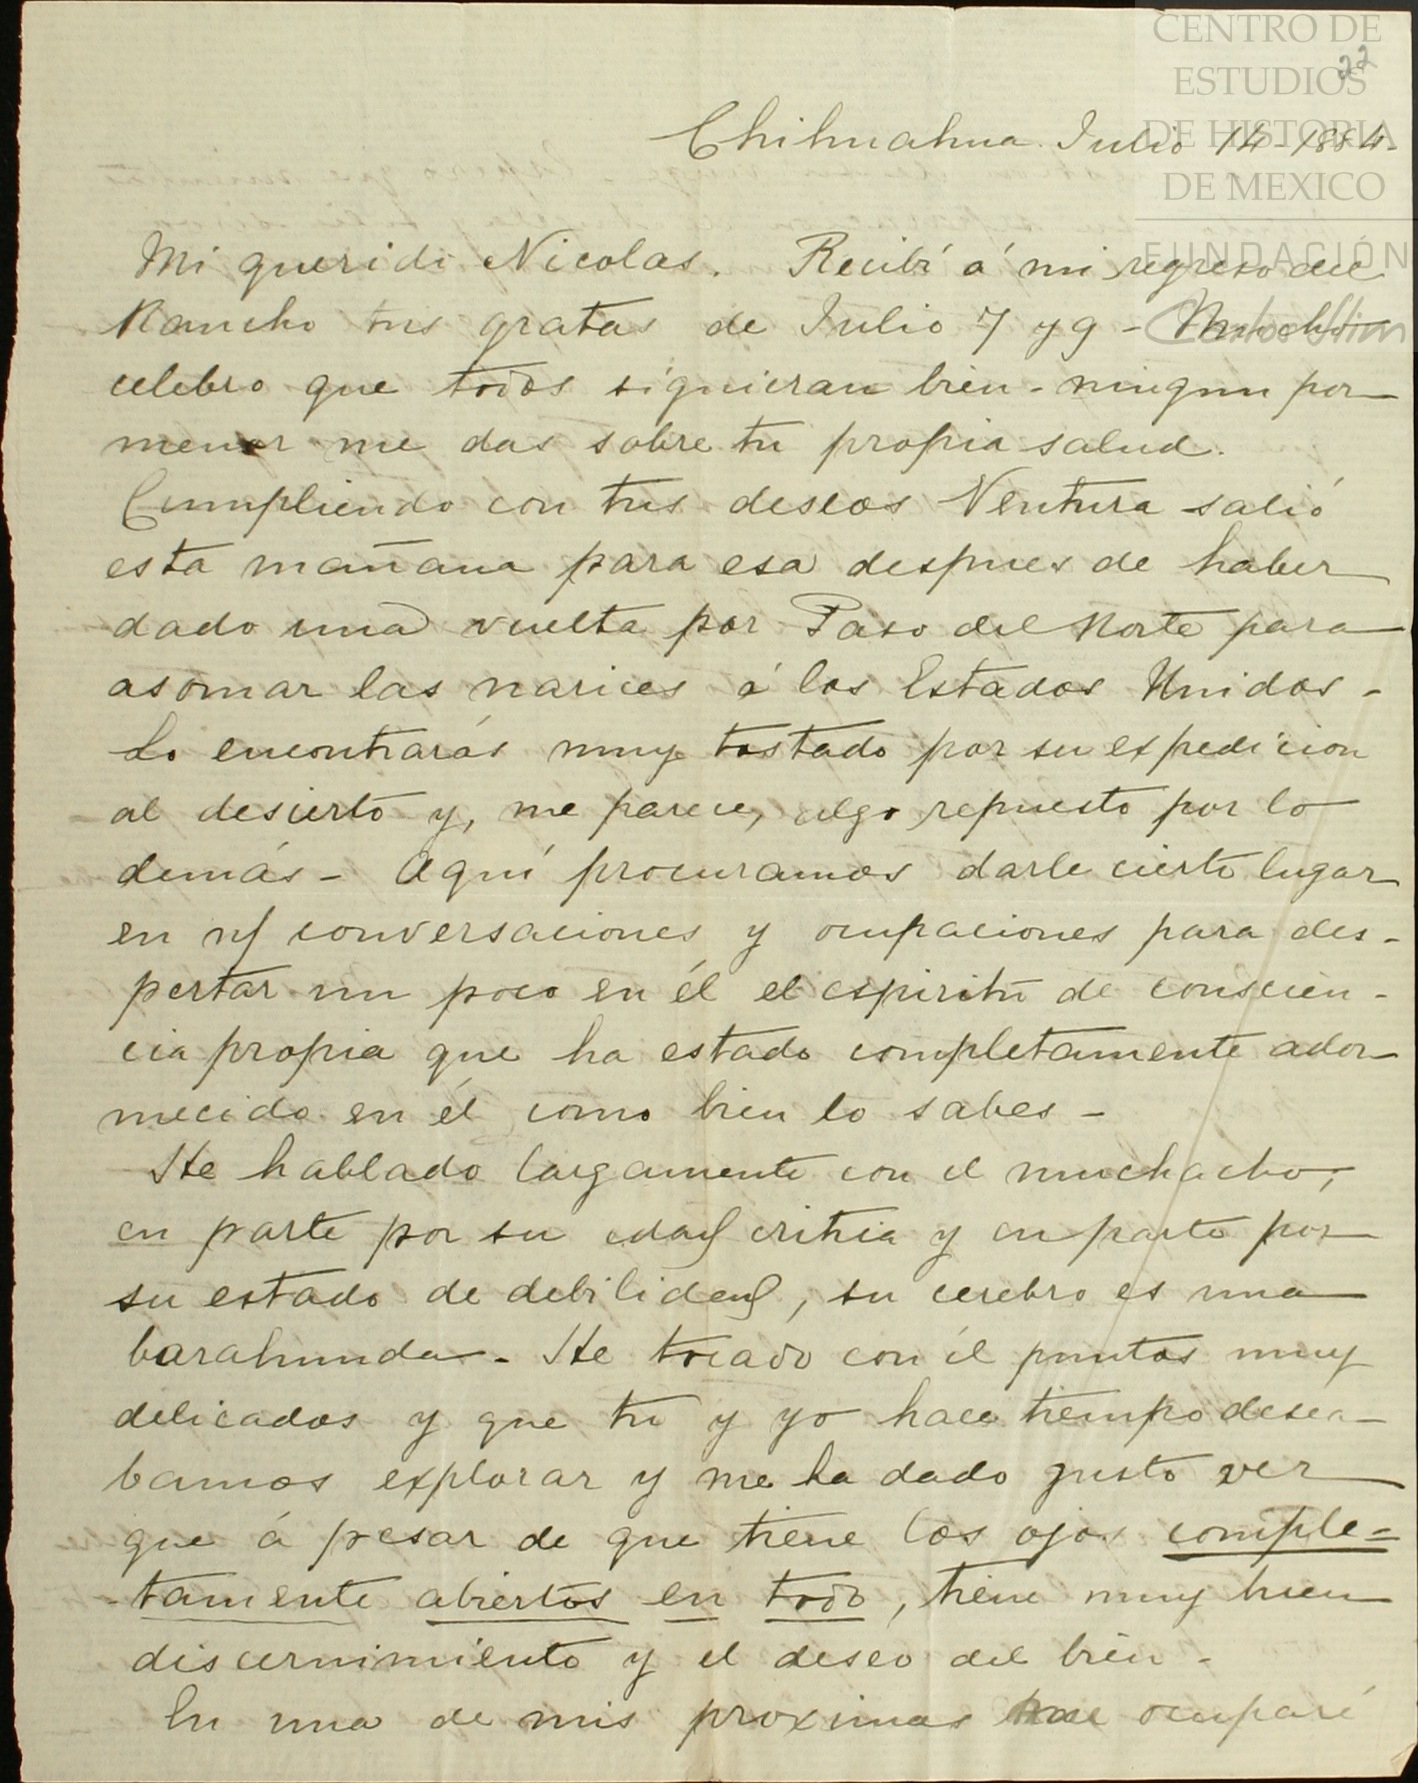 CENTRO DE
ESTUDIOS
DE HISTORIA
DE MEXICO
FUNDACIÓN
Carlos Slim
22
Chihuahua Julio 14-1884.
Mi querido Nicolas. Recibí á mi regreso del
Rancho tus gratas de Julio 7 y 9 - Mucho
celebro que todos siguieran bien - ningun por-
menor me das sobre tu propia salud.
Cumpliendo con tus deseos Ventura salió
esta mañana para esa despues de haber
dado una vuelta por Paso del Norte para
asomar las narices á los Estados Unidos -
Lo encontrarás muy tostado por su expedicion
al desierto y, me parece, algo repuesto por lo
demás - Aquí procuramos darle cierto lugar
en n/ conversaciones y ocupaciones para des-
pertar un poco en él el espiritu de conscien-
cia propia que ha estado completamente ador-
mecido en él como bien lo sabes -
He hablado largamente con el muchacho;
en parte por su edad critica y en parte por
su estado de debilidad, su cerebro es una
barahunda - He tocado con él puntos muy
delicados y que tu y yo hace tiempo desea-
bamos explorar y me ha dado gusto ver
que á pesar de que tiene los ojos comple=
tamente abiertos en todo, tiene muy buen
discernimiento y el deseo del bien -
En una de mis proximas me ocuparé